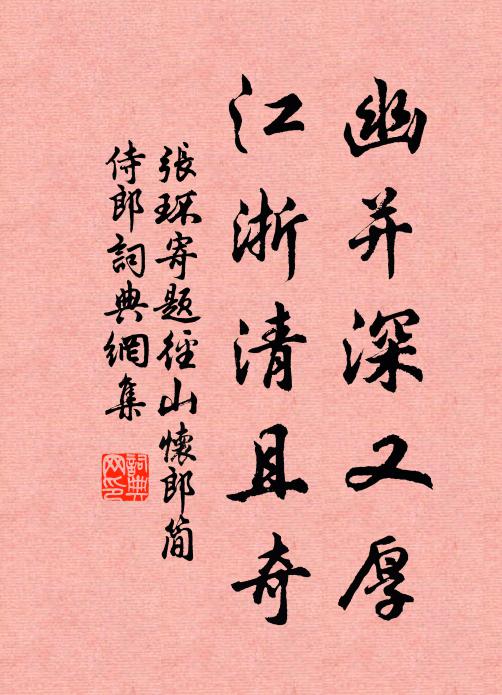 幽并深又厚
江浙清且奇
張瓌寄題徑山懷郎簡
侍郎詞典網集
詞典網印